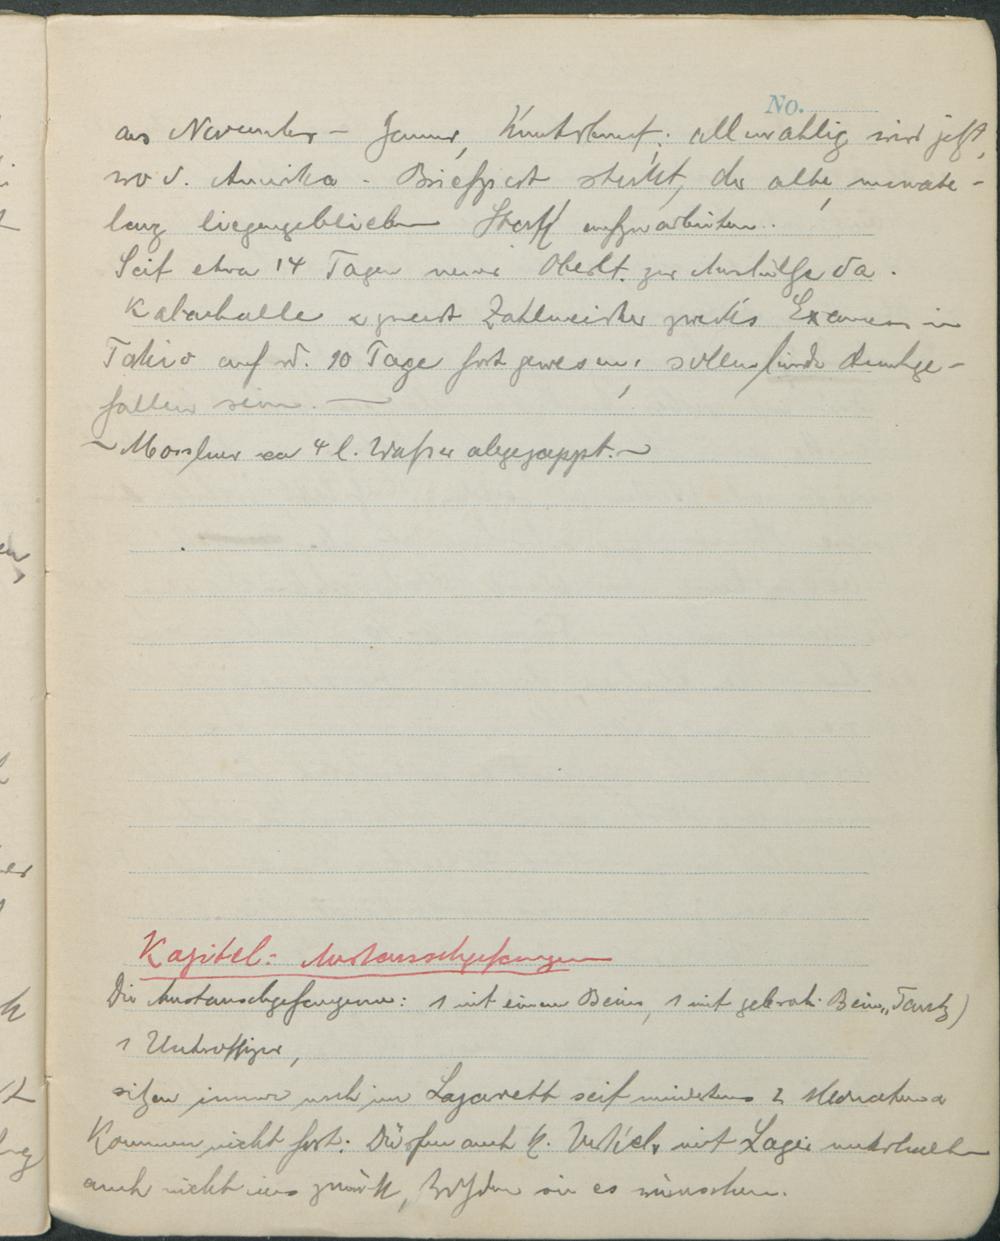 No.
aus November - Januar, allmählig wird jetzt,
wo d. Amerika - Briefpost stockt, der alte, monate-
lang liegengebliebene Stoff aufzuarbeiten.
Seit etwa 14 Tagen neuer Oberlt. zur Aushülfe da.
2 Zahlmeister zwecks Examen in
Tokio auf rd. 10 Tage fort gewesen; sollen beide durchge-
fallen sein. —
~ ca 4 l. Wasser abgezappt. ~
Kapitel: Austauschgefangene
Die Austauschgefangenen: 1 mit einem Bein, 1 mit gebroch. Bein
1 Unteroffizier,
sitzen immer noch im Lazarett seit mindestens 2 Monaten u
kommen nicht fort. Dürfen auch k. Verkehr mit Lager unterhalten
auch nicht ins zurück, trotzdem sie es wünschen.